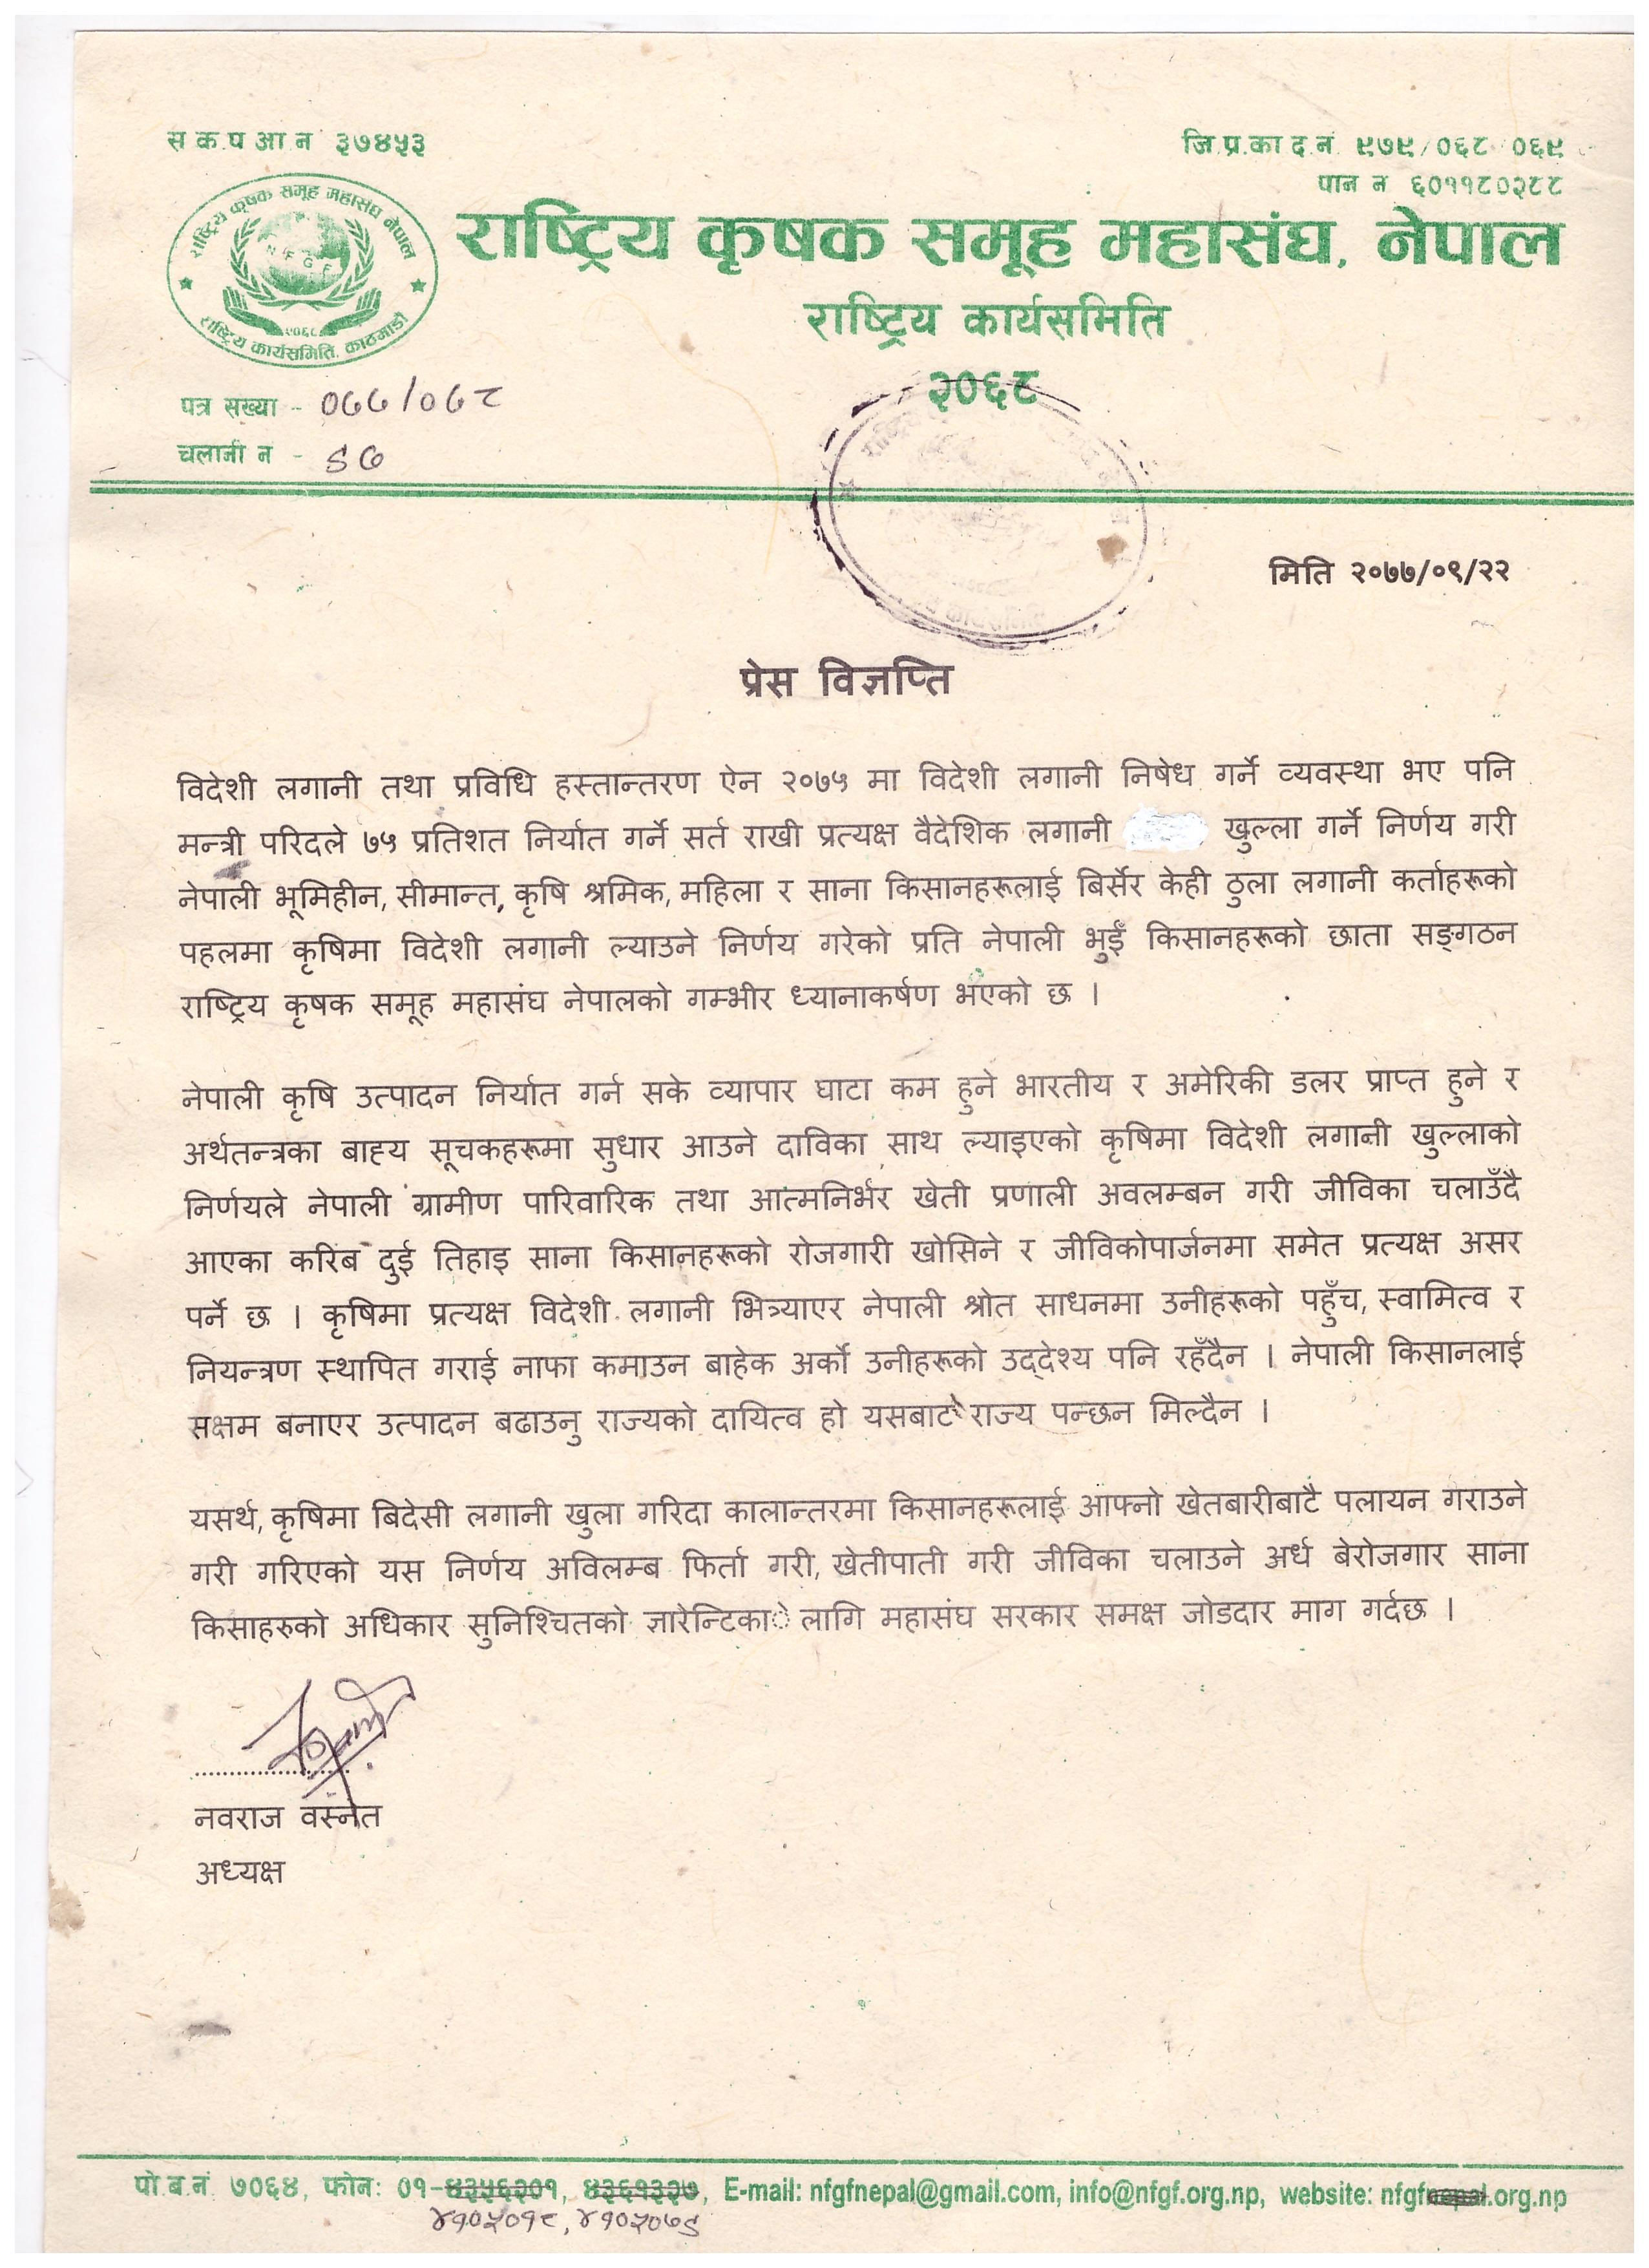 स क.प आ न ३७४५३
जि.प्र.का द.नं. ९७९/०६८ ०६९
पान न ६०११८०२८८
राष्ट्रिय कृषक समूह महासंघ नेपाल
N F G F
२०६८
राष्ट्रिय कार्यसमिति, काठमाडौं
राष्ट्रिय कृषक समूह महासंघ, नेपाल
राष्ट्रिय कार्यसमिति
२०६८
पत्र संख्या - ०७७/०७८
चलानी न - ५७
मिति २०७७/०९/२२
प्रेस विज्ञप्ति
विदेशी लगानी तथा प्रविधि हस्तान्तरण ऐन २०७५ मा विदेशी लगानी निषेध गर्ने व्यवस्था भए पनि
मन्त्री परिदले ७५ प्रतिशत निर्यात गर्ने सर्त राखी प्रत्यक्ष वैदेशिक लगानी खुल्ला गर्ने निर्णय गरी
नेपाली भूमिहीन, सीमान्त, कृषि श्रमिक, महिला र साना किसानहरूलाई बिर्सेर केही ठुला लगानी कर्ताहरूको
पहलमा कृषिमा विदेशी लगानी ल्याउने निर्णय गरेको प्रति नेपाली भुईँ किसानहरूको छाता सङ्गठन
राष्ट्रिय कृषक समूह महासंघ नेपालको गम्भीर ध्यानाकर्षण भएको छ ।
नेपाली कृषि उत्पादन निर्यात गर्न सके व्यापार घाटा कम हुने भारतीय र अमेरिकी डलर प्राप्त हुने र
अर्थतन्त्रका बाह्य सूचकहरूमा सुधार आउने दाविका साथ ल्याइएको कृषिमा विदेशी लगानी खुल्लाको
निर्णयले नेपाली ग्रामीण पारिवारिक तथा आत्मनिर्भर खेती प्रणाली अवलम्बन गरी जीविका चलाउँदै
आएका करिब दुई तिहाइ साना किसानहरूको रोजगारी खोसिने र जीविकोपार्जनमा समेत प्रत्यक्ष असर
पर्ने छ । कृषिमा प्रत्यक्ष विदेशी लगानी भित्र्याएर नेपाली श्रोत साधनमा उनीहरूको पहुँच, स्वामित्व र
नियन्त्रण स्थापित गराई नाफा कमाउन बाहेक अर्को उनीहरूको उद्देश्य पनि रहँदैन । नेपाली किसानलाई
सक्षम बनाएर उत्पादन बढाउनु राज्यको दायित्व हो यसबाटे राज्य पन्छन मिल्दैन ।
यसर्थ, कृषिमा बिदेसी लगानी खुला गरिदा कालान्तरमा किसानहरूलाई आफ्नो खेतबारीबाटै पलायन गराउने
गरी गरिएको यस निर्णय अविलम्ब फिर्ता गरी, खेतीपाती गरी जीविका चलाउने अर्ध बेरोजगार साना
किसाहरुको अधिकार सुनिश्चितको ज्ञारेन्टिकाे लागि महासंघ सरकार समक्ष जोडदार माग गर्दछ ।
नवराज वस्नेत
अध्यक्ष
पो.ब.नं. ७०६४, फोन: ०१-४३५६२०१, ४३६१३२७, E-mail: nfgfnepal@gmail.com, info@nfgf.org.np, website: nfgfnepal.org.np
४१०२०१८, ४१०२०७५